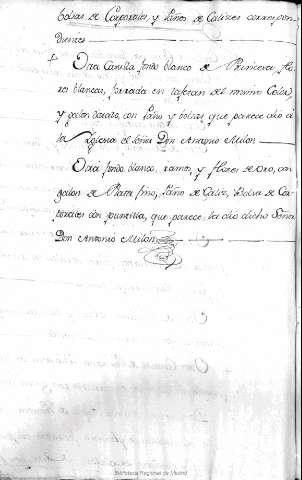 bolsas de Corporales, y Paños de Calizes correspon
dientes
Otra Casulla fondo blanco de Primavera, flo
res blancas, forrada en tafetan del mismo Color,
y galon dorado, con Paño y bolsas que parece dio a
la Yglesia el Señor Don Antonio Milon
Otra fondo blanco, ramos, y flores de oro, con
galon de Plata fino, Paño de Caliz, Bolsa de Cor
porales con puntilla, que parece la dio dicho Señor
Don Antonio Milon
Biblioteca Regional de Madrid